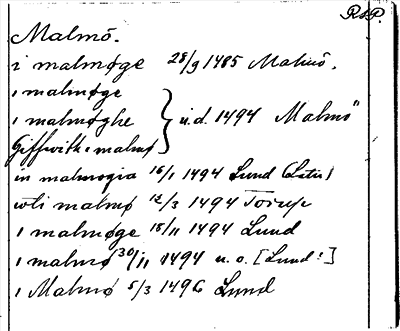 R&P.
Malmö.
i malmøge 28/9 1485 Malmö.
i malmøge
i malmøghe } u.d. 1494 Malmö
Giffwith i malmø
in malmogia 16/1 1494 Lund (Latin)
wti malmø 12/3 1494
i malmøge 18/11 1494 Lund
i malmø 30/11 1494 u.o. [Lund?]
i Malmø 5/3 1496 Lund